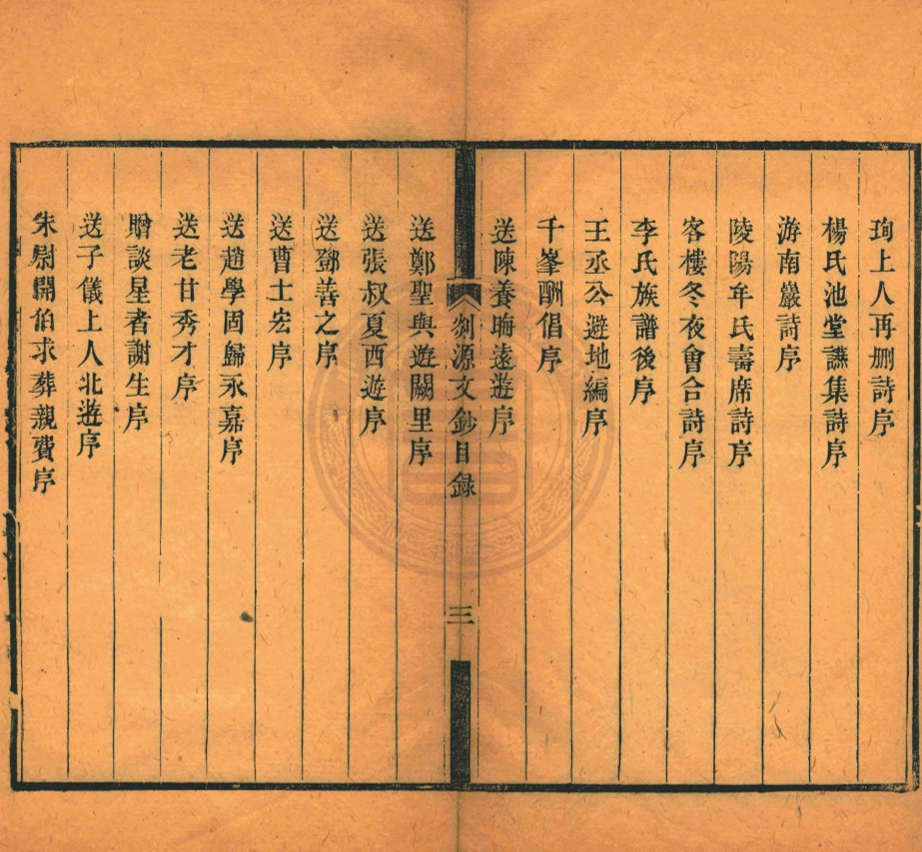 珣上人再刪詩序
楊氏池堂讌集詩序
游南巖詩序
陵陽牟氏壽席詩序
客樓冬夜會合詩序
李氏族譜後序
王丞公避地編序
千峯酬倡序
送陳養晦遠遊序
剡源文鈔目録
三
送鄭聖與遊闕里序
送張叔夏西遊序
送鄧善之序
送曹士宏序
送趙學固歸永嘉序
送老甘秀才序
贈談星者謝生序
送子儀上人北遊序
朱尉開伯求葬親費序